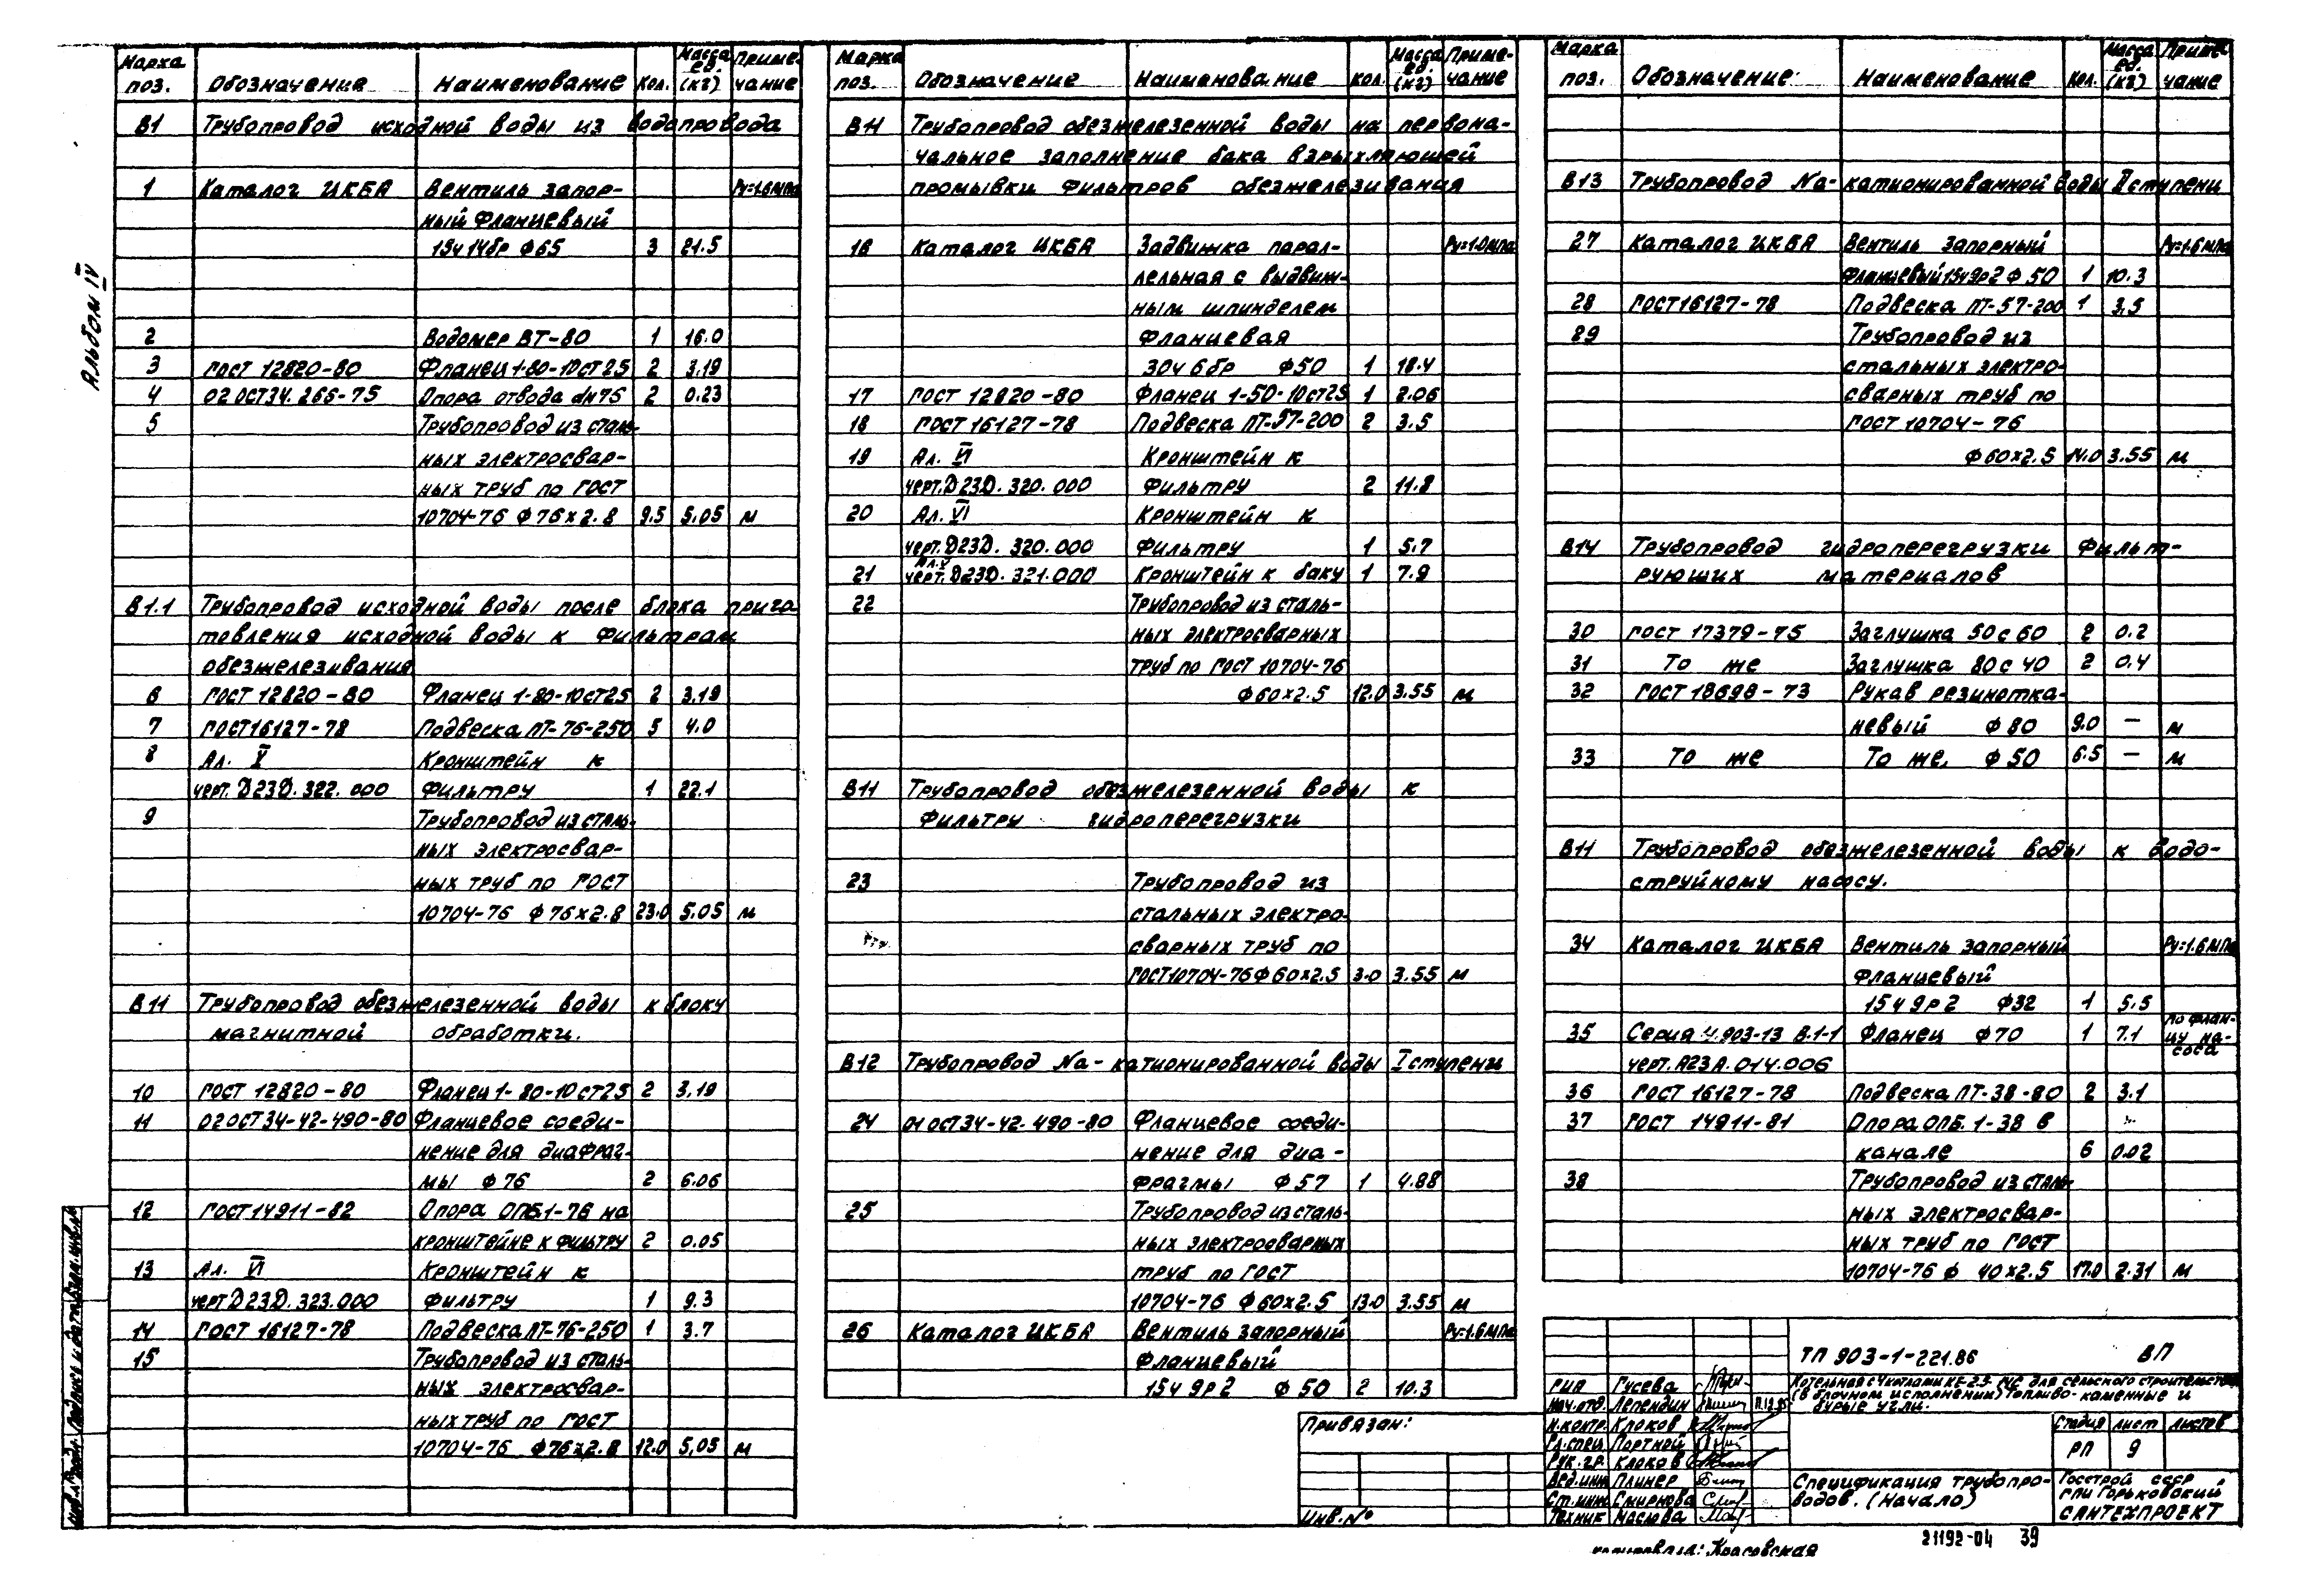 Альбом IV
Марка поз. Обозначение Наименование Кол. Масса ед. (кг) Примечание
В1 Трубопровод исходной воды из водопровода
1 Каталог ЦКБА Вентиль запор- Ру=1.6 МПа
ный фланцевый
15ч14бр ф65 3 21.5
2 Водомер ВТ-80 1 16.0
3 ГОСТ 12820-80 Фланец 1-80-10 ст25 2 3.19
4 02 ОСТ34. 266-75 Опора отвода dн76 2 0.23
5 Трубопровод из сталь-
ных электросвар-
ных труб по ГОСТ
10704-76 ф76х2.8 9.5 5.05 м
В1.1 Трубопровод исходной воды после блока приго-
товления исходной воды к фильтрам
обезжелезивания
6 ГОСТ 12820-80 Фланец 1-80-10ст25 2 3.19
7 ГОСТ16127-78 Подвеска ПТ-76-250 5 4.0
8 Ал. V Кронштейн к
черт. Д23Д. 322. 000 фильтру 1 22.1
9 Трубопровод из сталь-
ных электросвар-
ных труб по ГОСТ
10704-76 ф76х2.8 23.0 5.05 м
В11 Трубопровод обезжелезенной воды к блоку
магнитной обработки.
10 ГОСТ 12820-80 Фланец 1-80-10 ст25 2 3.19
11 02 ОСТ34-42-490-80 Фланцевое соеди-
нение для диафраг-
мы ф76 2 6.06
12 ГОСТ14911-82 Опора ОПБ1-76 на
кронштейне к фильтру 2 0.05
13 Ал. VI Кронштейн к
черт Д23Д. 323.000 фильтру 1 9.3
14 ГОСТ 16127-78 Подвеска ПТ-76-250 1 3.7
15 Трубопровод из сталь-
ных электросвар-
ных труб по ГОСТ
10704-76 ф76х2.8 12.0 5.05 м
Марка поз. Обозначение Наименование Кол. Масса ед. (кг) Примечание
В11 Трубопровод обезжелезенной воды на первона-
чальное заполнение бака взрыхляющей
промывки фильтров обезжелезивания
16 Каталог ЦКБА Задвижка парал- Ру=1.0МПа
лельная с выдвиж-
ным шпинделем
фланцевая
30ч 6бр ф50 1 18.4
17 ГОСТ 12820-80 Фланец 1-50-10ст25 1 2.06
18 ГОСТ 16127-78 Подвеска ПТ-57-200 2 3.5
19 Ал. VI Кронштейн к
черт.Д23Д. 320. 000 фильтру 2 11.8
20 Ал. VI Кронштейн к
черт.Д23Д. 320.000 фильтру 1 5.7
Ал.V
21 черт.Д23Д. 321.000 Кронштейн к баку 1 7.9
22 Трубопровод из сталь-
ных электросварных
труб по ГОСТ 10704-76
ф60х2.5 12.0 3.55 м
В11 Трубопровод обезжелезенной воды к
фильтру гидроперегрузки
23 Трубопровод из
стальных электро-
сварных труб по
ГОСТ10704-76 ф60х2.5 3.0 3.55 м
В12 Трубопровод Na- катионированной воды I ступени
24 01 ОСТ34-42-490-80 Фланцевое соеди-
нение для диа-
фрагмы ф57 1 4.88
25 Трубопровод из сталь-
ных электросварных
труб по ГОСТ
10704-76 ф60х2.5 13.0 3.55 м
26 Каталог ЦКБА Вентиль запорный Ру=1.6МПа
фланцевый
15ч 9р2 ф50 2 10.3
Марка поз. Обозначение Наименование Кол. Масса ед. (кг) Примечание
В13 Трубопровод Na- катионированной воды II ступени
27 Каталог ЦКБА Вентиль запорный Ру=1.6 МПа
фланцевый 15ч9р2 ф50 1 10.3
28 ГОСТ16127-78 Подвеска ПТ-57-200 1 3.5
29 Трубопровод из
стальных электро-
сварных труб по
ГОСТ 10704-76
ф60х2.5 14.0 3.55 м
В14 Трубопровод гидроперегрузки фильт-
рующих материалов
30 ГОСТ 17379-75 Заглушка 50с60 2 0.2
31 То же Заглушка 80с40 2 0.4
32 ГОСТ 18698-73 Рукав резинотка-
невый ф80 9.0 — м
33 То же То же, ф50 6.5 — м
В11 Трубопровод обезжелезенной воды к водо-
струйному насосу.
34 Каталог ЦКБА Вентиль запорный Ру=1.6МПа
фланцевый
15ч 9р2 ф32 1 5.5
35 Серия 4.903-13 В.1-1 Фланец ф70 1 7.1 по флан-
цу на-
соса
черт. А23А. 014.006
36 ГОСТ 16127-78 Подвеска ПТ-38-80 2 3.1
37 ГОСТ 14911-81 Опора ОПБ. 1-38 в
канале 6 0.02
38 Трубопровод из сталь-
ных электросвар-
ных труб по ГОСТ
10704-76 ф 40х2.5 17.0 2.31 м
Инв.№подл. Подпись и дата Взам.инв.№
Привязан:
Инв.№
ТП 903-1-221.86 ВП
ГИП Гусева
Нач.отд. Лепендин 11.12.85
Н.контр. Клоков
Гл.спец Портной
Рук.гр. Клоков
Вед.инж Плинер
Ст.инж Смирнова
Техник Маслова
Котельная с 4 котлами КЕ-2.5-14С для сельского строительства
(в блочном исполнении) Топливо-каменные и
бурые угли.
Стадия Лист Листов
РП 9
Спецификация трубопро-
водов. (Начало)
Госстрой СССР
ГПИ Горьковский
САНТЕХПРОЕКТ
Красовская
21192-04 39